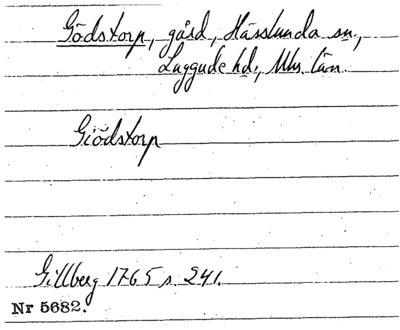 Gödstorp, gård, Hässlunda sn,
Luggude hd, Mhs. län.
Giödstorp
Gillberg 1765 s. 241.
Nr 5682.